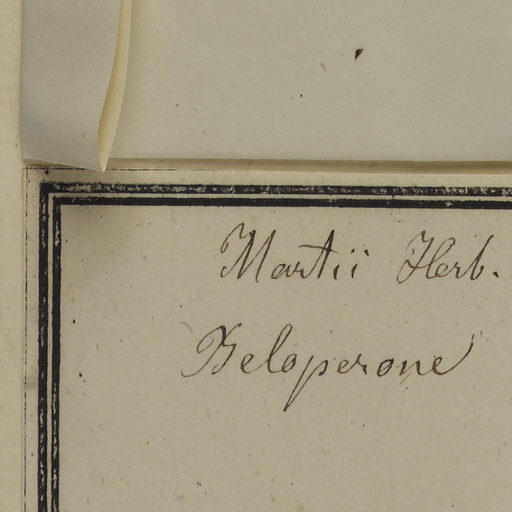 Martii Herb.
Beloperone